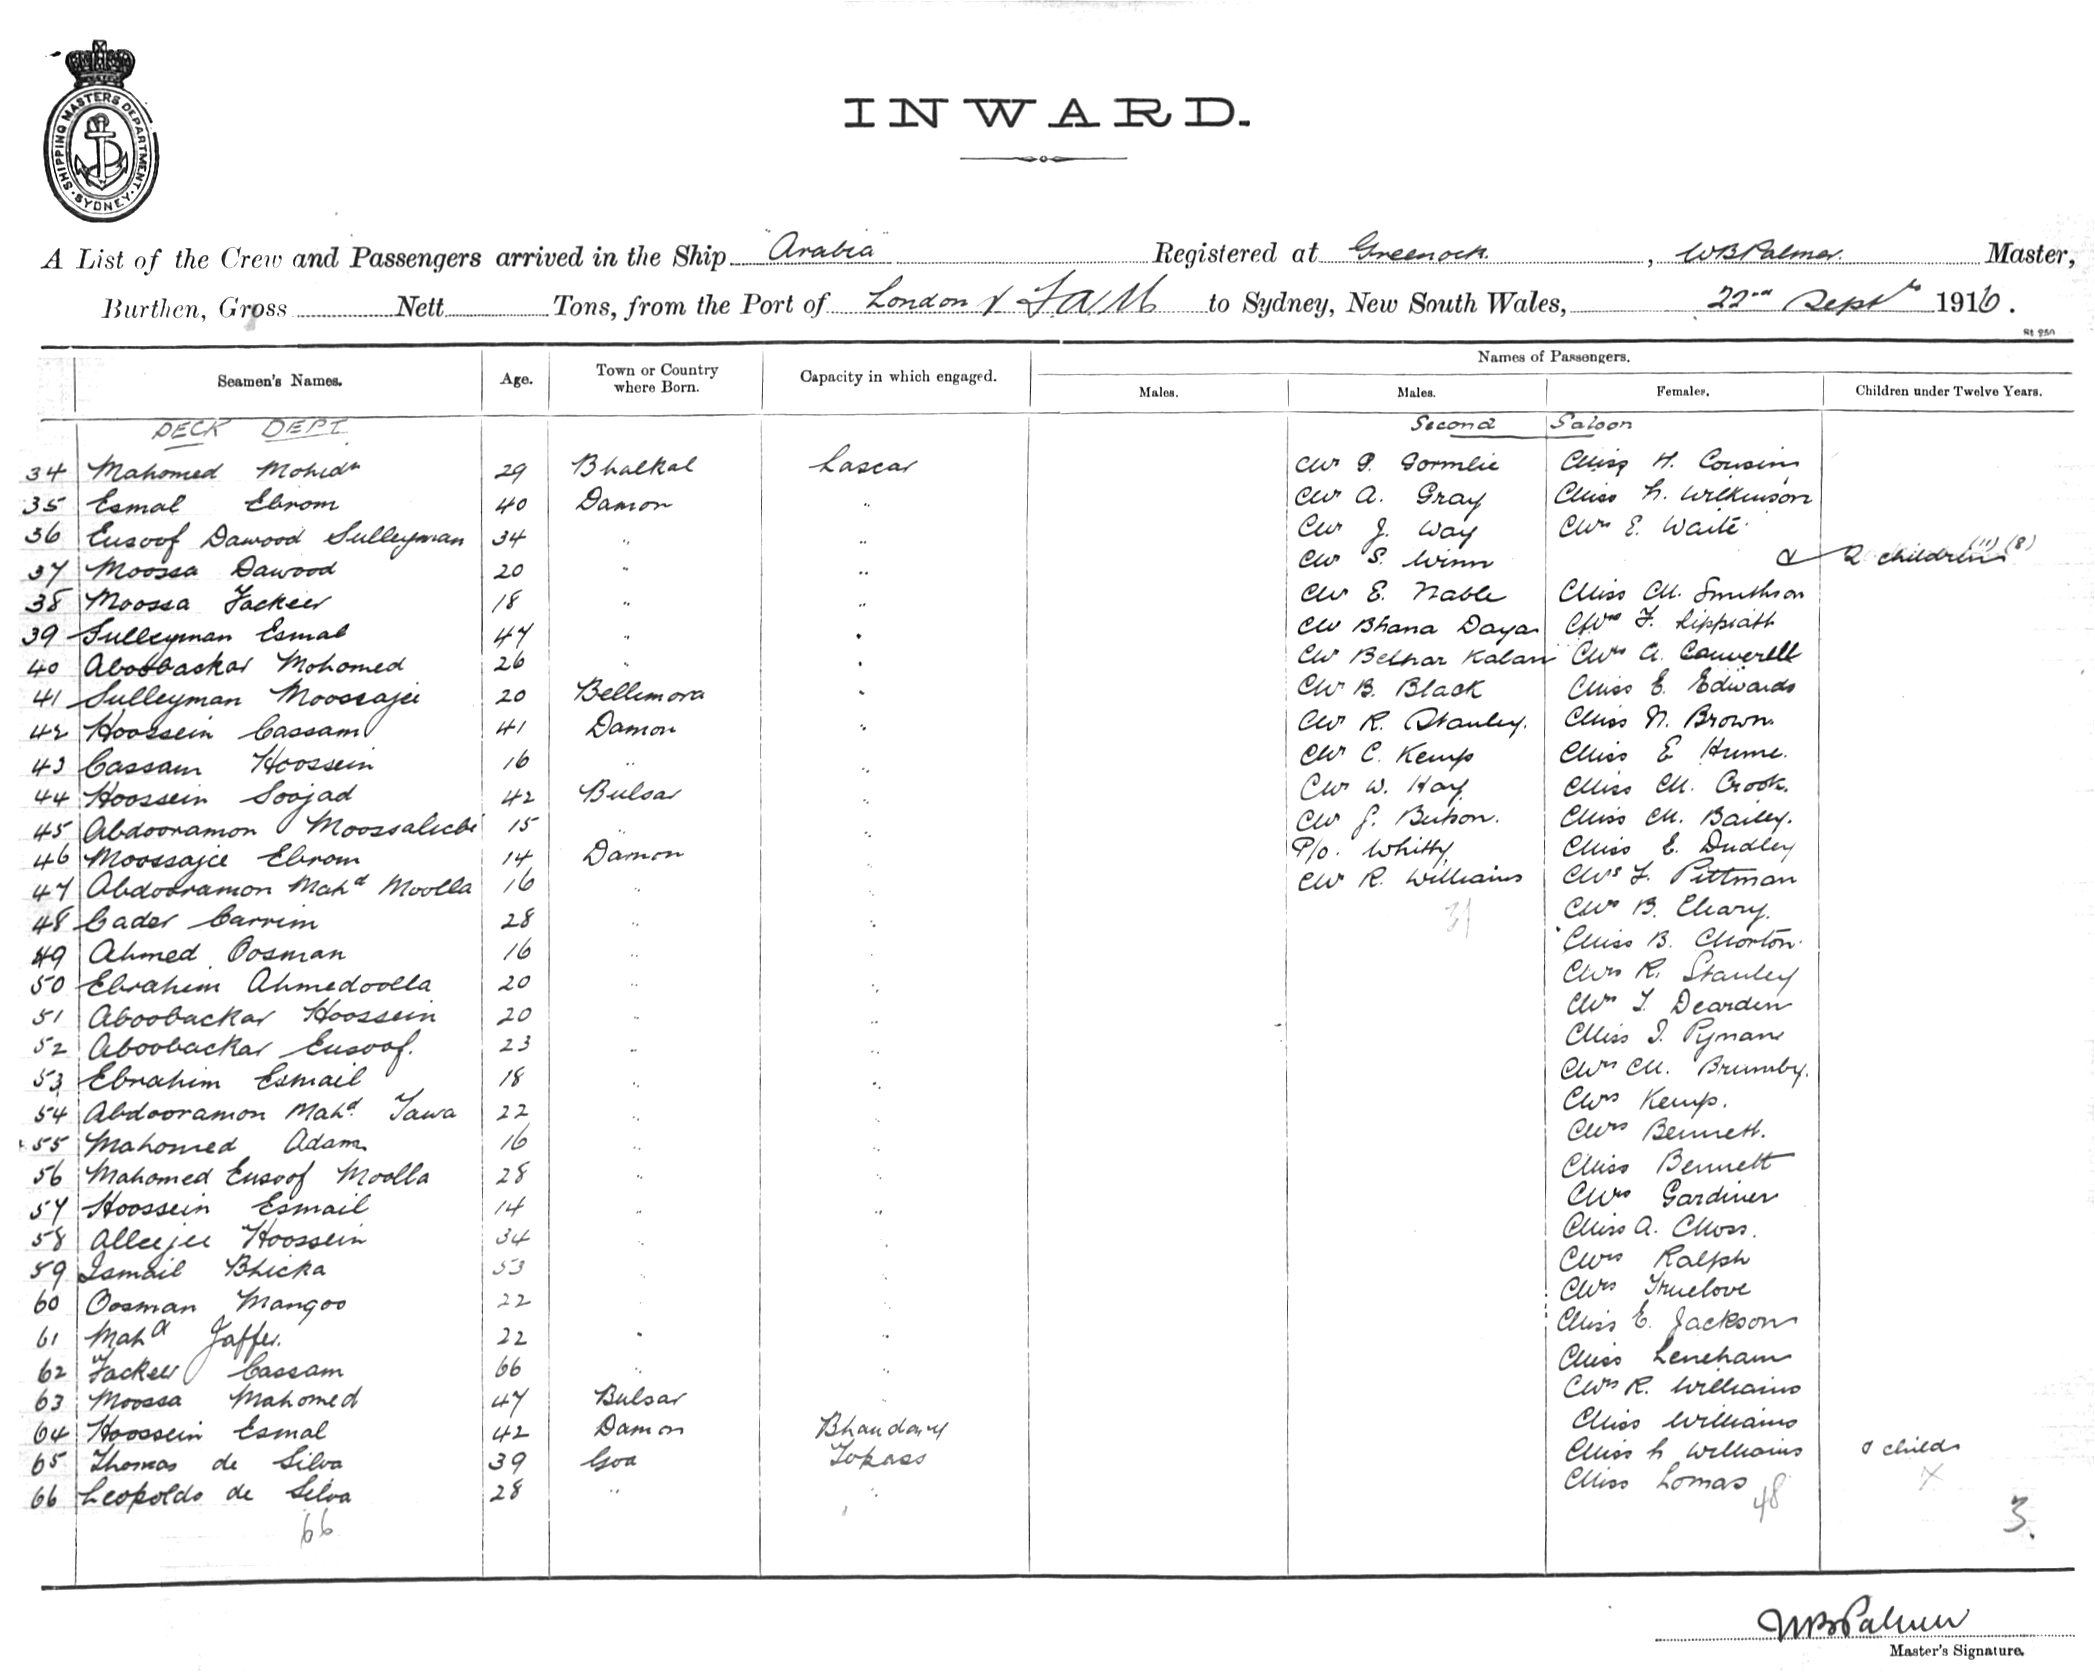 SHIPPING MASTERS DEPARTMENT
SYDNEY
INWARD.
A List of the Crew and Passengers arrived in the Ship "Arabia" Registered at Greenock, WB Palmer. Master,
Burthen, Gross Nett Tons, from the Port of London & to Sydney, New South Wales, 22nd Sept 1916.
Names of Passengers.
Seamen's Names. Age. Town or Country where Born. Capacity in which engaged. Males. Males. Females. Children under Twelve Years.
DECK DEPT Second Saloon
34 Mahomed 29 Bhatkal Lascar Mr P. Gormlie Miss H. Cousins
35 Esmal Ebrom 40 Damon " Mr A. Gray Miss L. Wilkinson
36 Eusoof Dawood Sulleyman 34 " " Mr J. Way Mrs E. Waite
37 Moossa Dawood 20 " " Mr S. Winn & 2 children (11) (8)
38 Moossa Fackeer 18 " " Mr E. Nable Miss M. Smithson
39 Sulleyman Esmal 47 " " Mr Bhana Daya Mrs F. Lippiatt
40 Aboobackar Mohomed 26 " " Mr Kalan Mrs A.
41 Sulleyman Moossajee 20 Bellimora " Mr B. Black Miss E. Edwards
42 Hoossein Cassam 41 Damon " Mr R. Stanley. Miss N. Brown
43 Cassam Hoossein 16 " " Mr C. Kemp Miss E Hume.
44 Hoossein Soojad 42 Bulsar " Mr W. Hay Miss M. Crook.
45 Abdooramon 15 " " Mr J. Butson. Miss M. Bailey.
46 Moossajee Ebrom 14 Damon " P/o. Whitty Miss E. Dudley
47 Abdooramon Mahd Moolla 16 " " Mr R. Williams Mrs F. Pittman
48 Cader Carrim 28 " " 31 Mrs B. Cleary.
49 Ahmed Oosman 16 " " Miss B. Morton.
50 Ebrahim Ahmedoolla 20 " " Mrs R. Stanley
51 Aboobackar Hoossein 20 " " Mrs T. Dearden
52 Aboobackar Eusoof. 23 " " Miss I. Pyman
53 Ebrahim Esmail 18 " " Mrs M. Brumby.
54 Abdooramon Mahd. Tawa 22 " " Mrs Kemp.
55 Mahomed Adam 16 " " Mrs Bennett.
56 Mahomed Eusoof Moolla 28 " " Miss Bennett
57 Hoossein Esmail 14 " " Mrs Gardiner
58 Alleejee Hoossein 34 " " Miss A. Moss.
59 Ismail Bhicka 53 " " Mrs Ralph
60 Oosman Mangoo 22 " " Mrs Truelove
61 Mahd Jaffer. 22 " " Miss E. Jackson
62 Fackeer Cassam 66 " " Miss Leneham
63 Moossa Mahomed 47 Bulsar " Mrs R. Williams
64 Hoossein Esmal 42 Damon Bhandary Miss Williams
65 Thomas de Silva 39 Goa Topass Miss L Williams & child
66 Leopoldo de Silva 28 " " Miss Lomas
66 48 3.
WB Palmer
Master's Signature.